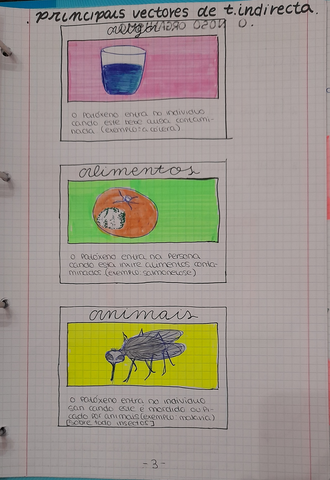 principais vectores de t. indirecta.
auga
O patóxeno entra no individuo
cando este bebe auga contami-
nada (exemplo: a cólera)
alimentos
O patóxeno entra na persoa
cando esta inxire alimentos conta-
minados (exemplo: salmonelose)
animais
O patóxeno entra no individuo
san cando este é mordido ou pi-
cado por animais (exemplo: malaria)
[sobre todo insectos]
-3-